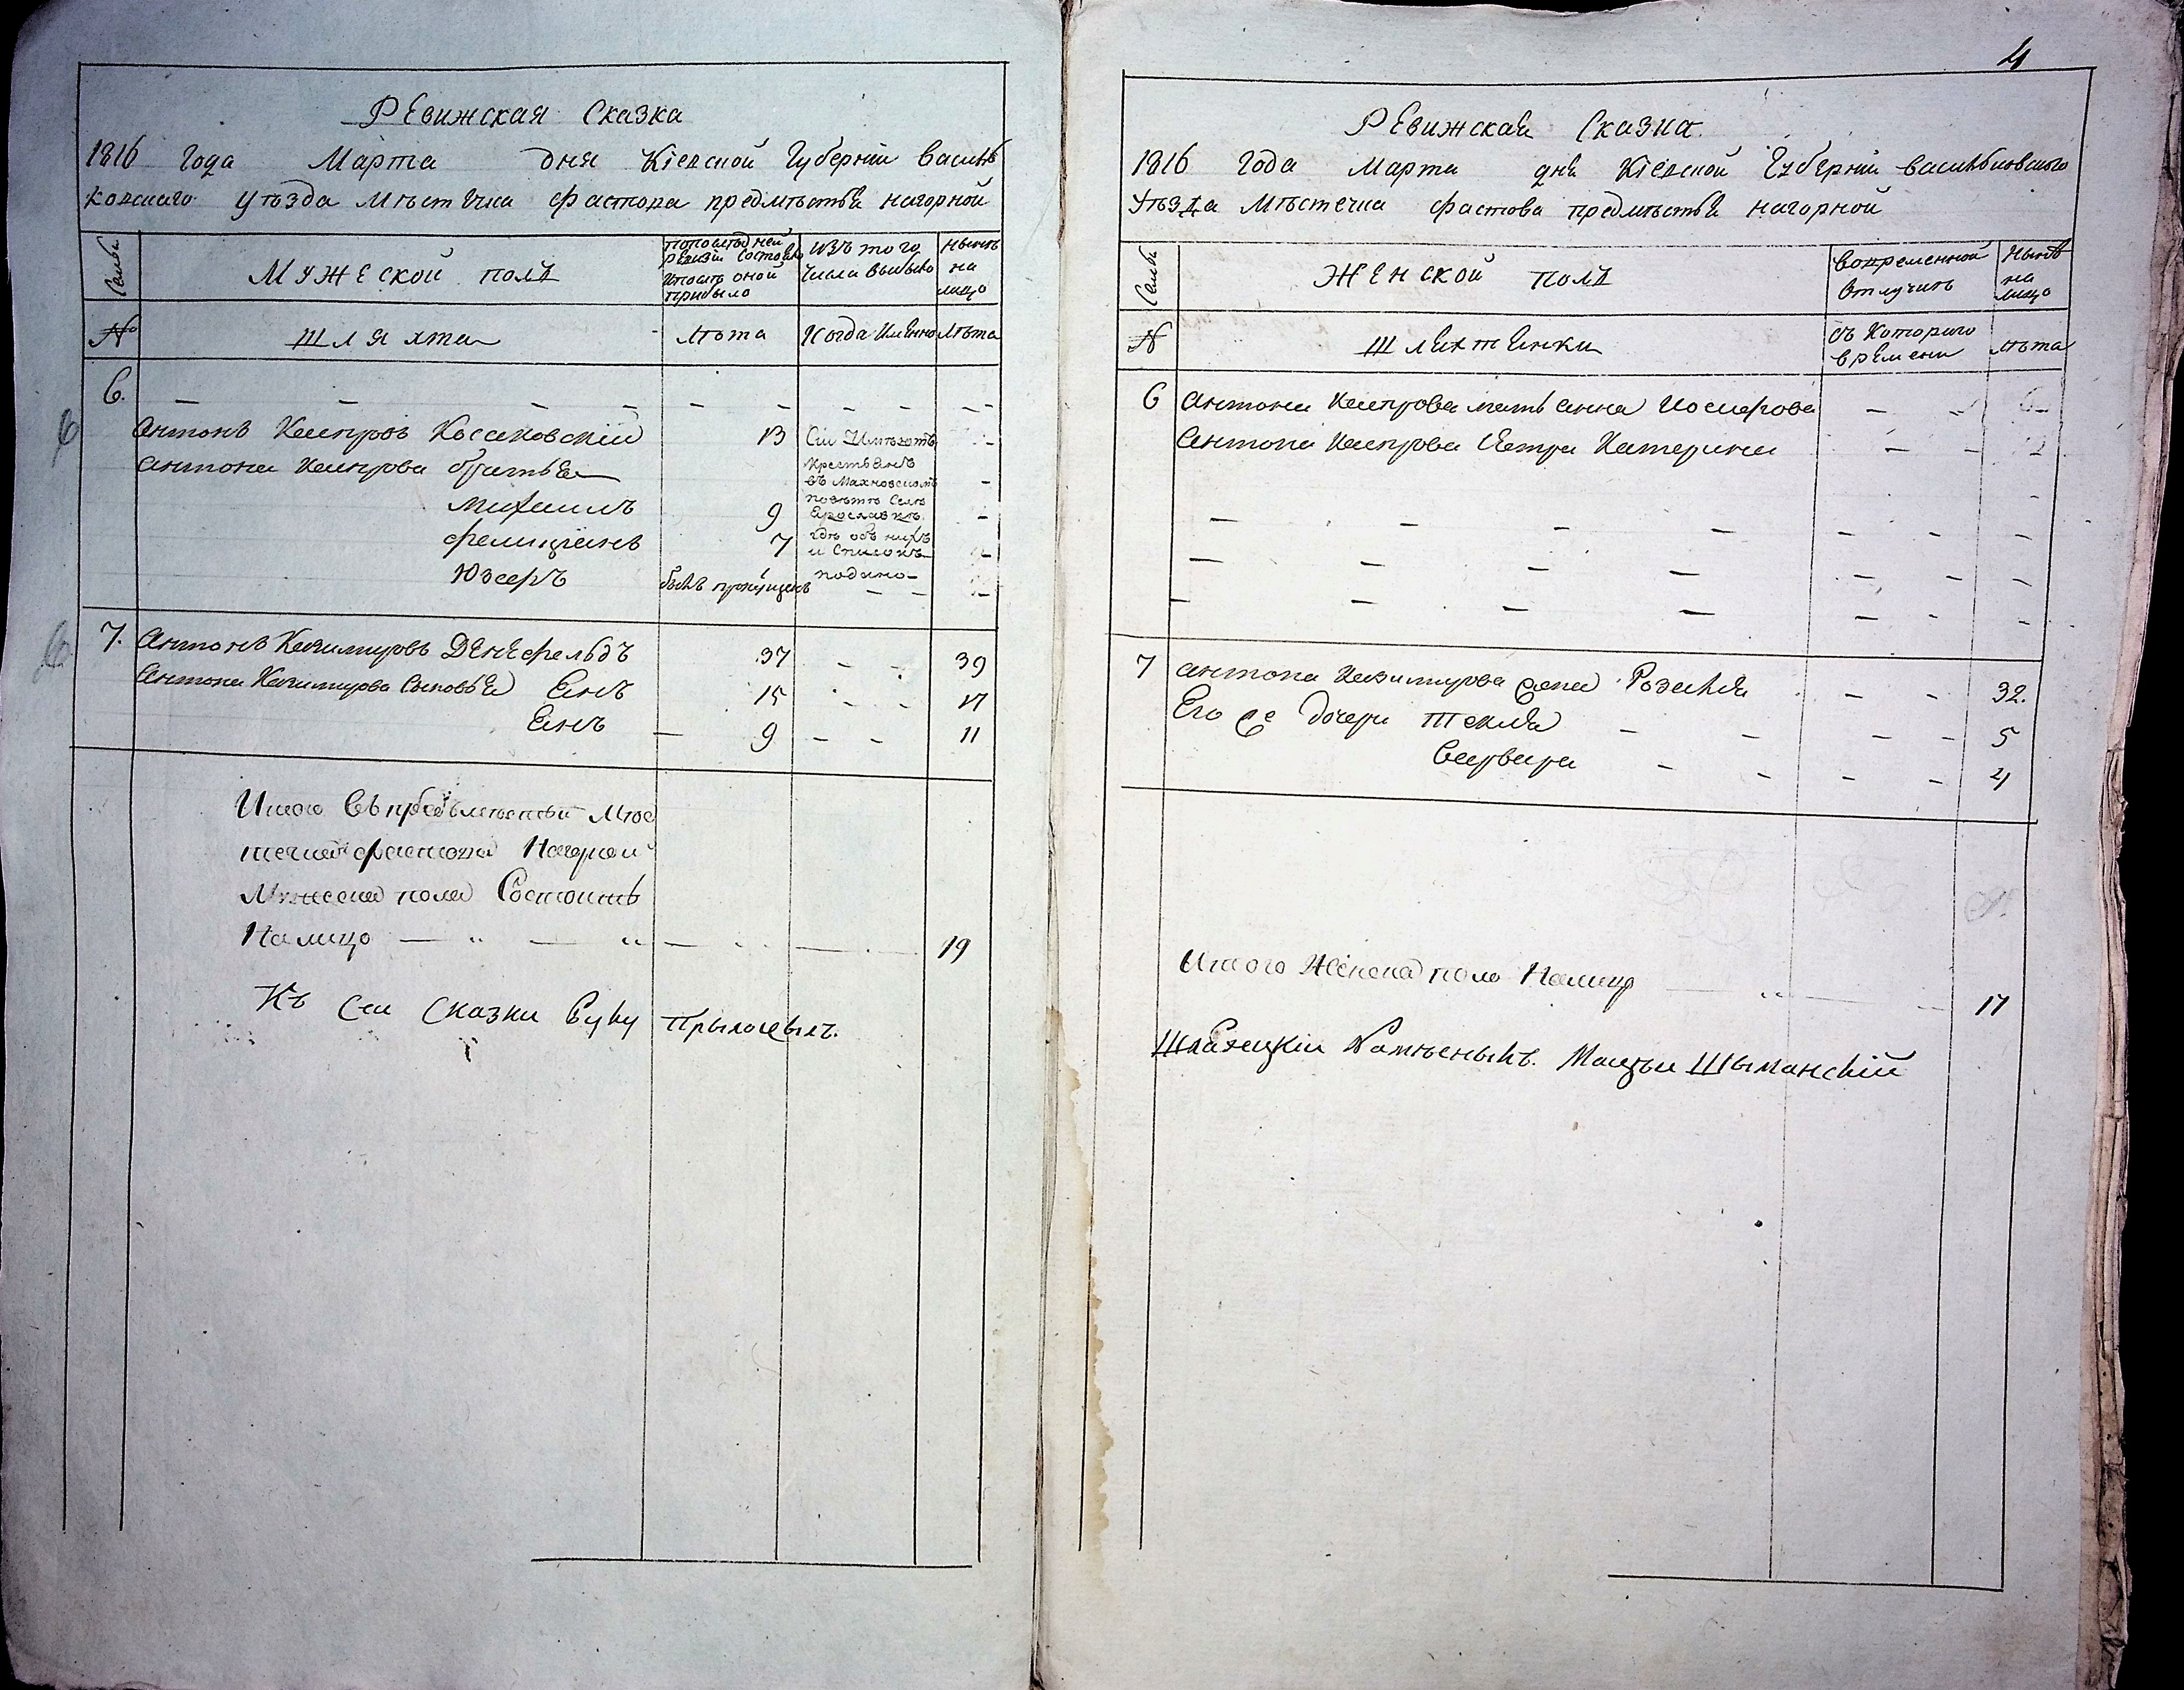 Ревижская Сказка
1816 Года Марта дня Кіевской Губерніи Василь
ковскаго Уѣзда Мѣстечка Фастова предмѣстья нагорной
Семьи
Мужеской полъ
попослѣдней
ревизіи состояло
ипослѣ оной
прибыло
изъ того
числа выбыло
нынѣ
на
лицо
№
Шляхта
Лѣта
Когда Имянно
Лѣта
6.
Антонъ Каспровъ Косаковскій 13
Антона Каспрова братья
Михаилъ 9
Фелиціянъ 7
Юзефъ былъ пропущенъ
Сіи Имѣютъ
крестьянъ
въ Махновскомъ
повѣтѣ Селѣ
Ярославкѣ
гдѣ объ нихъ
и Списокъ
подано
7. Антонъ Казимировъ Денефельдъ 37 39
Антона Казимирова Сыновья Янъ 15 17
Янъ 9 11
Итого Въ предъмѣстьи Мѣс
течка Фастова Нагорной
Мужеска пола Состоитъ
На лицо 19
Къ сеи сказки Руку Прыложылъ.
4
Ревижская Сказка
1816 Года Марта дня Кіевской Губерніи Васильковского
Уѣзда Мѣстечка Фастова предмѣстья нагорной
Семьи
Женской полъ
вовременной
отлучкѣ
Нынѣ
на
лицо
№
Шляхтянки
съ Которого
времени
лѣта
6 Антона Каспрова мать Анна Иосифова
Антона Каспрова Сестра Катерина
7 Антона Казимирова жена Розалія 32.
Его же дочери Текля 5
Варвара 4
Итого Женска полу Налицо 17
Шляхецкій Намѣсныкъ. Мацѣи Шыманскій